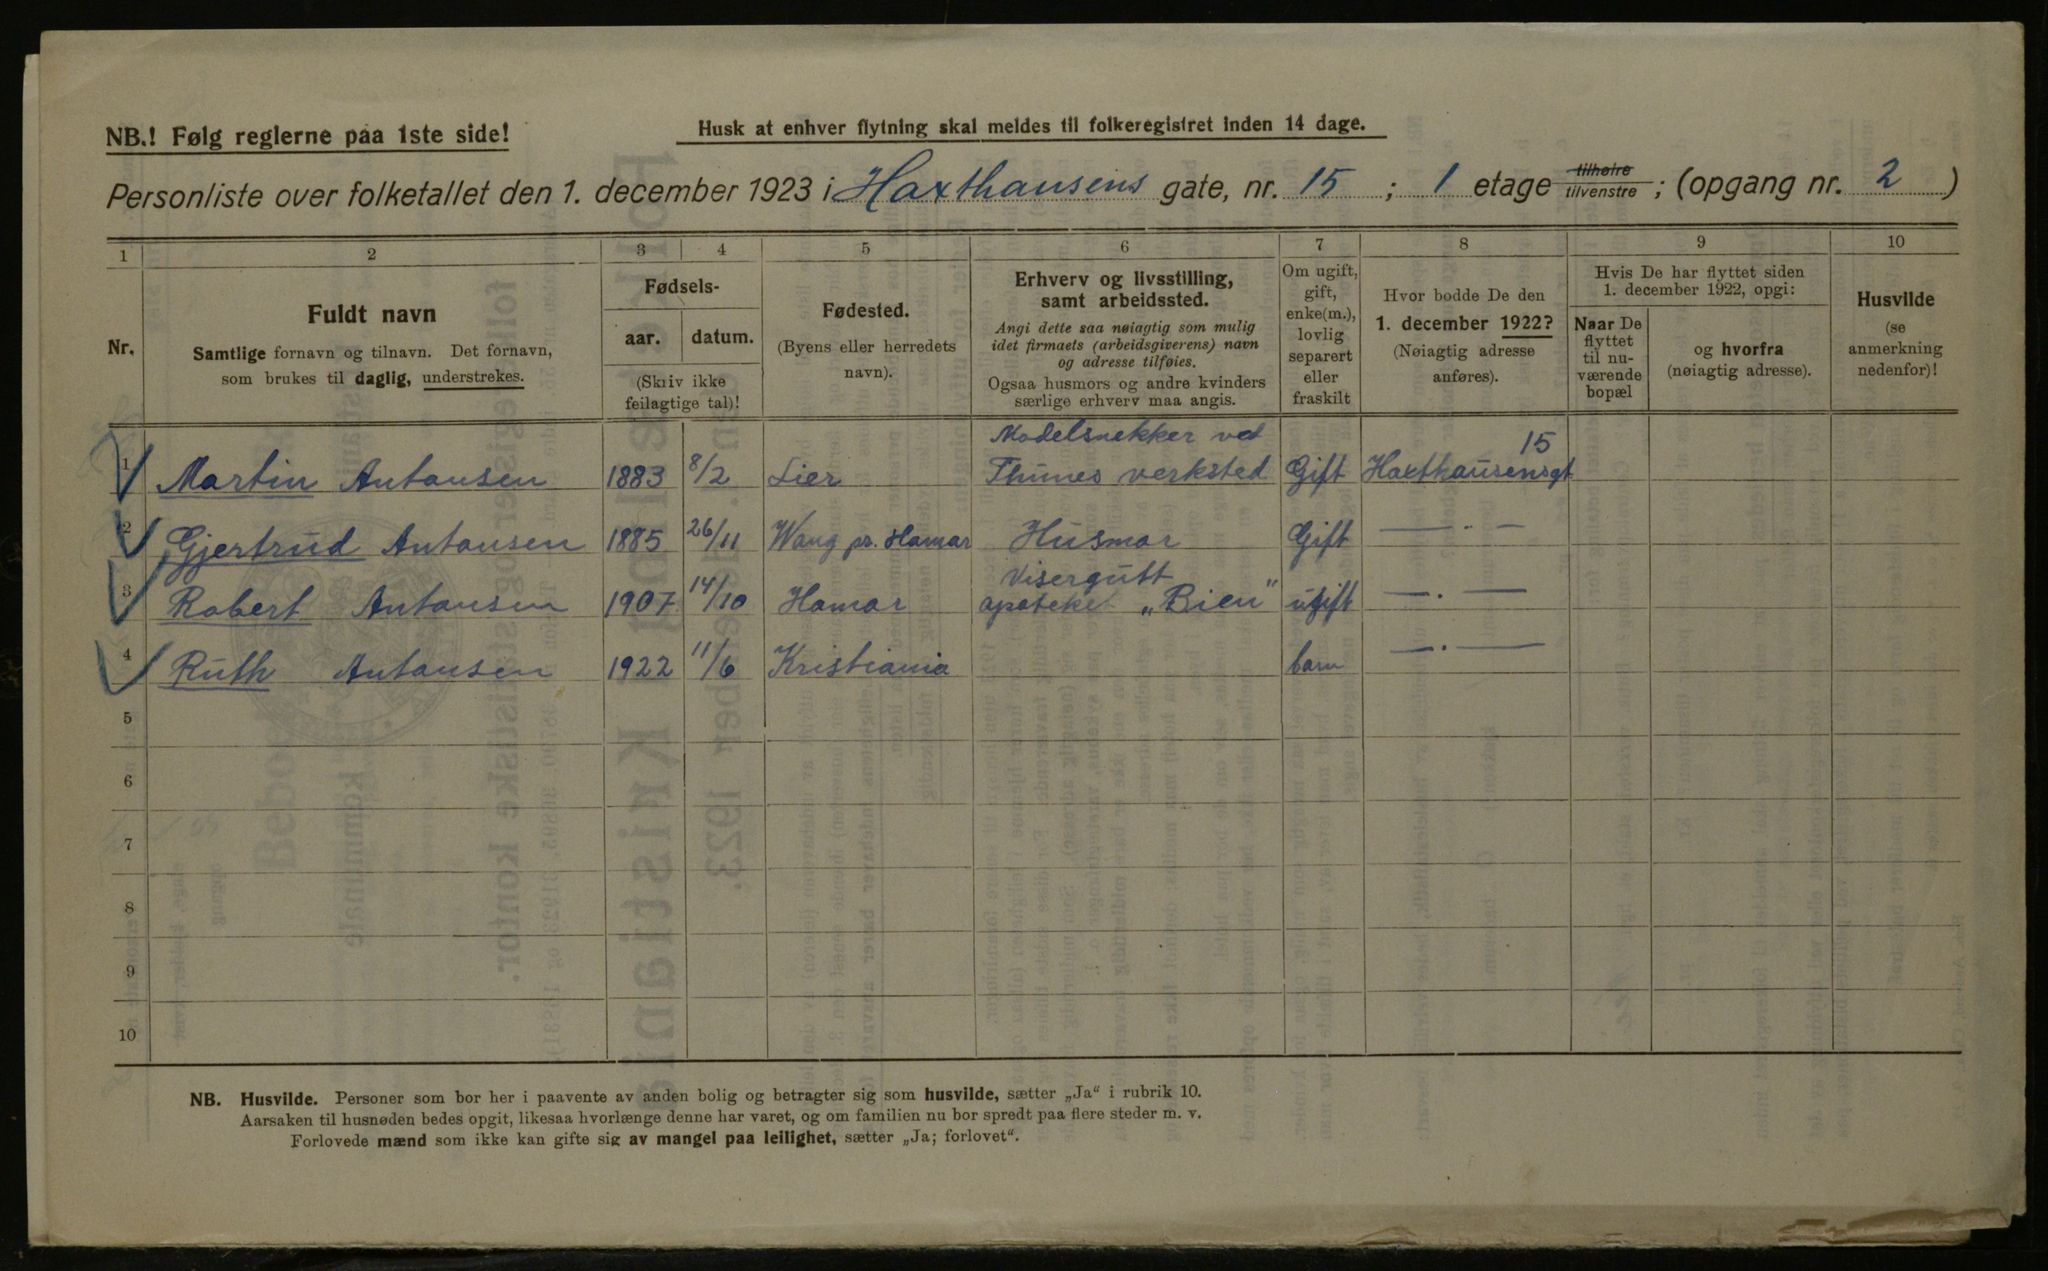 NB.! Følg reglerne paa 1ste side!
Husk at enhver flytning skal meldes til folkeregistret inden 14 dage.
Personliste over folketallet den 1. december 1923 i Haxthausens gate, nr. 15 ; 1 etage tilhøire tilvenstre ; (opgang nr. 2 )
1 2 3 4 5 6 7 8 9 10
Nr.
Fuldt navn
Samtlige fornavn og tilnavn. Det fornavn,
som brukes til daglig, understrekes.
Fødsels-
aar. datum.
(Skriv ikke
feilagtige tal)!
Fødested.
(Byens eller herredets
navn).
Erhverv og livsstilling,
samt arbeidssted.
Angi dette saa nøiagtig som mulig
idet firmaets (arbeidsgiverens) navn
og adresse tilføies.
Ogsaa husmors og andre kvinders
særlige erhverv maa angis.
Om ugift,
gift,
enke(m.),
lovlig
separert
eller
fraskilt
Hvor bodde De den
1. december 1922?
(Nøiagtig adresse
anføres).
Hvis De har flyttet siden
1. december 1922, opgi:
Naar De
flyttet
til nu-
værende
bopæl
og hvorfra
(nøiagtig adresse).
Husvilde
(se
anmerkning
nedenfor)!
1 Martin Antonsen 1883 8/2 Lier Modelsnekker ved Thunes verksted Gift Haxthausensgt 15
2 Gjertrud Antonsen 1885 26/11 Wang pr. Hamar Husmor Gift — . —
3 Robert Antonsen 1907 14/10 Hamar Visergutt apoteket „Bien" ugift — . —
4 Ruth Antonsen 1922 11/6 Kristiania barn — . —
5
6
7
8
9
10
NB. Husvilde. Personer som bor her i paavente av anden bolig og betragter sig som husvilde, sætter „Ja" i rubrik 10.
Aarsaken til husnøden bedes opgit, likesaa hvorlænge denne har varet, og om familien nu bor spredt paa flere steder m. v.
Forlovede mænd som ikke kan gifte sig av mangel paa leilighet, sætter „Ja; forlovet".